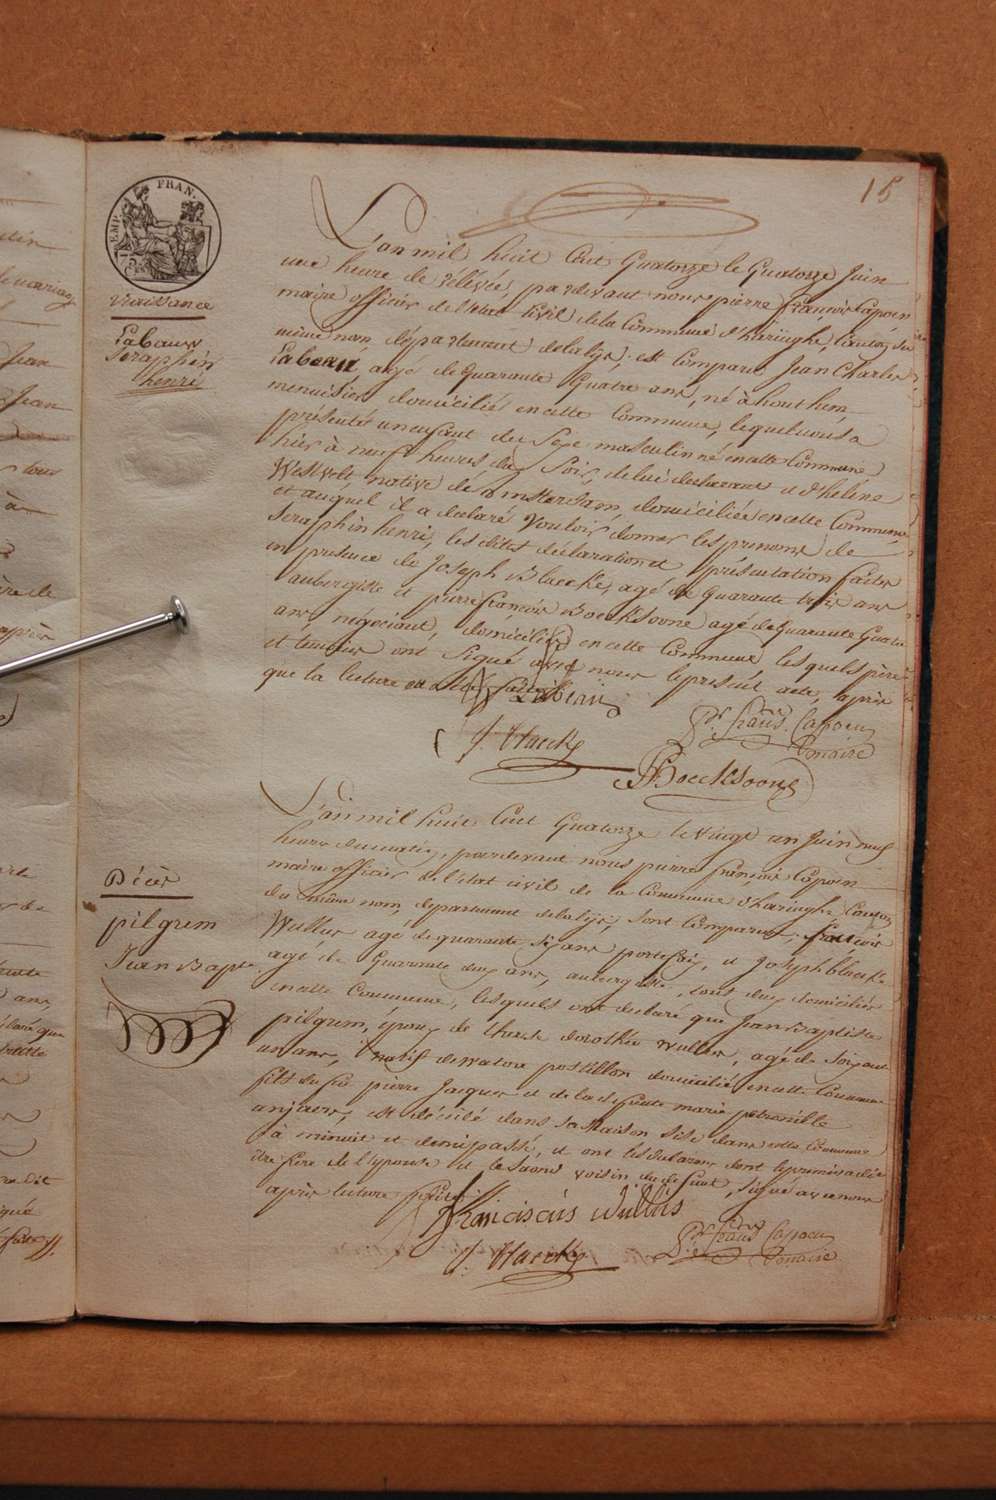 15
EMP. FRAN.
naissance
Labauw
Seraphin
henri
L'an mil huit Cent Quatorze le Quatorze Juin
une heure de rélévée, pardevant nous pierre françois Capoen
maire officier de l'état Civil de la Commune d'haringhe, Canton du
même nom département de la lijs; est comparu Jean Charles
Labeau agé de quarante quatre ans, né à houthem,
menuisier domicilié en cette Commune, lequel nous a
présenté un enfant du Sexe masculin né en cette Commune
hier à neuf heures du Soir, de lui declarant et d'helene
Westvelt, native de amsterdam, domiciliée en cette Commune
et auquel il a declaré Vouloir donner les prenoms de
Seraphin henri, les dites déclaration et présentation faites
en presence de Joseph Blaecke, agé de quarante trois ans
aubergiste et pierre françois Boecksoone agé de Quarante Quatre
ans négociant, domiciliés en cette Commune les quels père
et temoins ont Signé avec nous le present acte, après
que la lecture en a été faite
Labeau
J. Blaecke
Pr. frans. Capoen
maire
PBoecksoone
Décès
pilgrem
Jean Bapte
L'an mil huit Cent Quatorze le vingt un Juin neuf
heures du matin, pardevant nous pierre françois Capoen
maire officier de l'état civil de la Commune d'haringhe Canton
du même nom, departement de la lijs, sont Comparus, francois
Wullus agé de quarante six ans portefaix, et Joseph blaecke
agé de Quarante deux ans, aubergiste, tout deux domiciliés
en cette Commune, lesquels ont declaré que Jean Baptiste
pilgrem, époux de therese dorothée Wullus, agé de Soixante
un ans, natif de Watou postillon domicilié en cette Commune
fils de feu pierre Jacques et de la defunte marie petronille
anjaer, est décédé dans sa Maison Sise dans cette Commune
à minuit et demi passé, et ont les declarans dont le premier a dit
être frère de l'épouse et le second voisin du defunt, signé avec nous
après lecture faite
franciscus Wullus
J. Blaecke
Pr. frans Capoen
maire